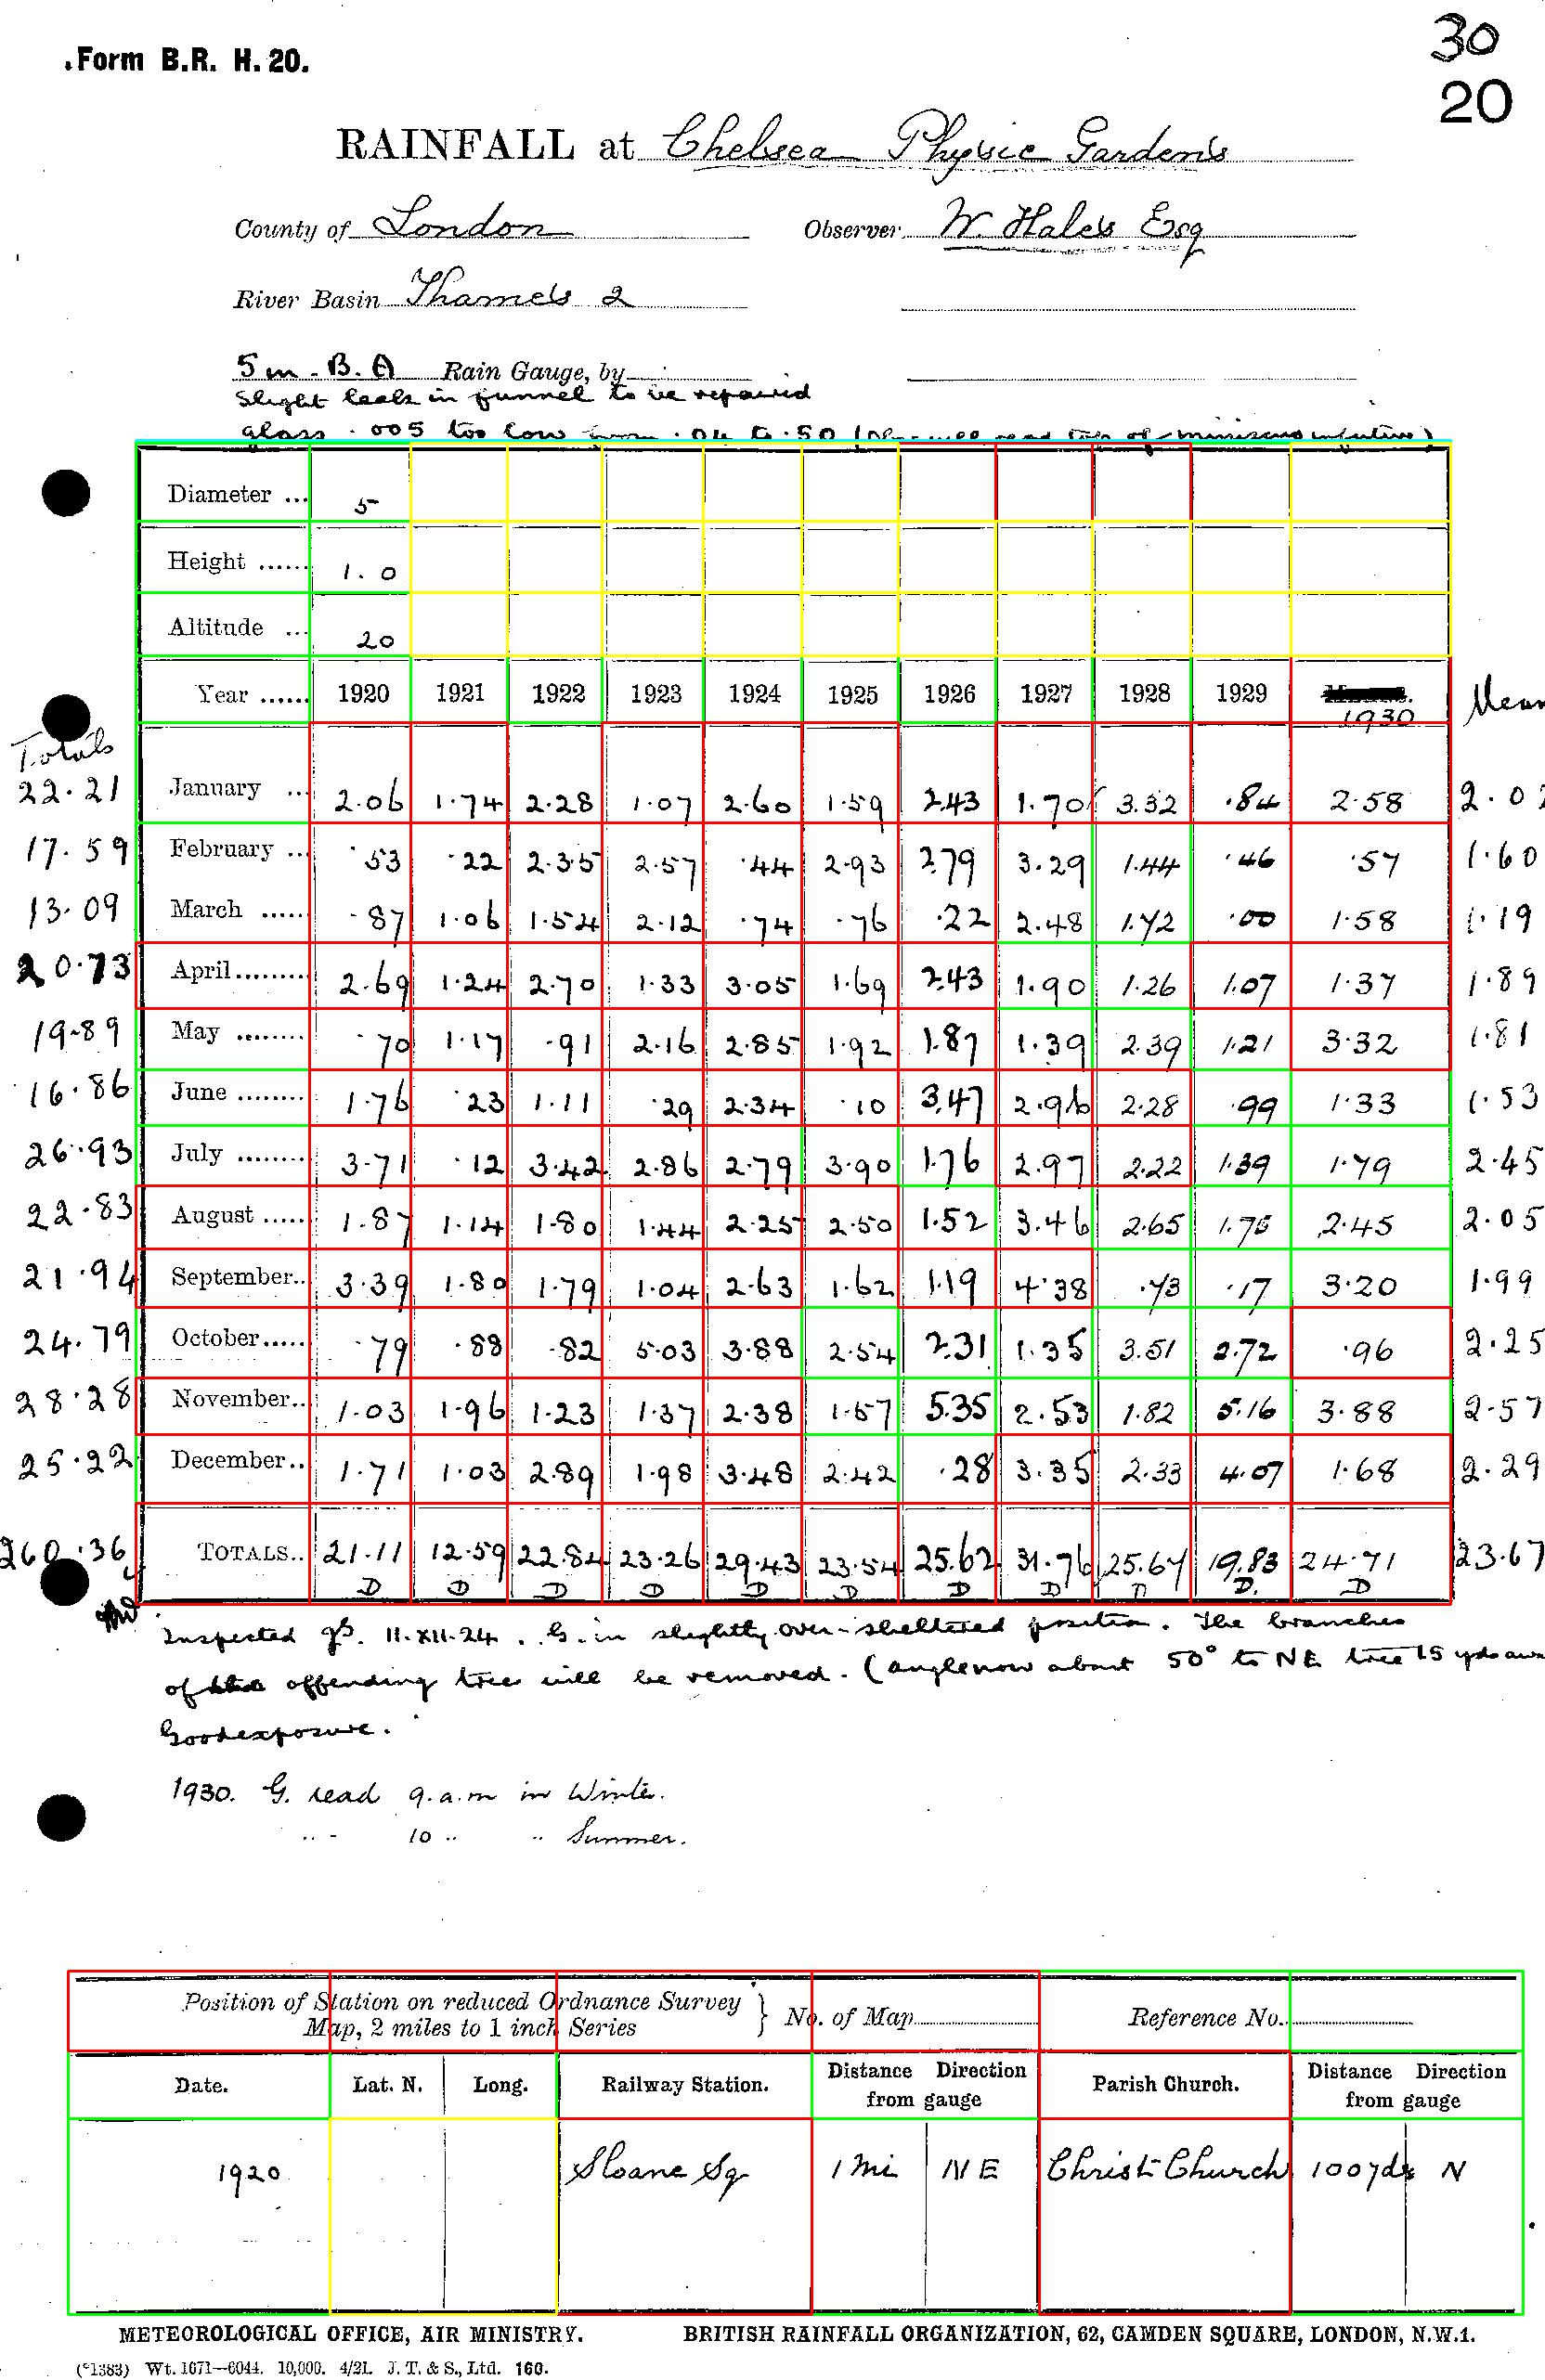 30
Form B.R. H. 20.
20
RAINFALL at Chelsea Physic Gardens
County of London Observer W. Hales Esq
River Basin Thames 2
5 in. B. A Rain Gauge, by
Slight leak in funnel to be repaired
glass .005 too low from .04 to .50 (Obs. will read top of miniscus in future)
Diameter ... 5
Height ...... 1.0
Altitude ... 20
Year ...... 1920 1921 1922 1923 1924 1925 1926 1927 1928 1929 1930 Mean
Totals
22.21 January ... 2.06 1.74 2.28 1.07 2.60 1.59 2.43 1.70 3.32 .84 2.58 2.02
17.59 February ... .53 .22 2.35 2.57 .44 2.93 2.79 3.29 1.44 .46 .57 1.60
13.09 March ..... .87 1.06 1.54 2.12 .74 .76 .22 2.48 1.72 .00 1.58 1.19
20.73 April......... 2.69 1.24 2.70 1.33 3.05 1.69 2.43 1.90 1.26 1.07 1.37 1.89
19.89 May ........ .70 1.17 .91 2.16 2.85 1.92 1.87 1.39 2.39 1.21 3.32 1.81
16.86 June ........ 1.76 .23 1.11 .29 2.34 .10 3.47 2.96 2.28 .99 1.33 1.53
26.93 July ........ 3.71 .12 3.42 2.86 2.79 3.90 1.76 2.97 2.22 1.39 1.79 2.45
22.83 August ..... 1.87 1.14 1.80 1.44 2.25 2.50 1.52 3.46 2.65 1.75 2.45 2.05
21.94 September.. 3.39 1.80 1.79 1.04 2.63 1.62 1.19 4.38 .73 .17 3.20 1.99
24.79 October..... .79 .88 .82 5.03 3.88 2.54 2.31 1.35 3.51 2.72 .96 2.25
28.28 November.. 1.03 1.96 1.23 1.37 2.38 1.57 5.35 2.53 1.82 5.16 3.88 2.57
25.22 December.. 1.71 1.03 2.89 1.98 3.48 2.42 .28 3.35 2.33 4.07 1.68 2.29
260.36 TOTALS.. 21.11 12.59 22.84 23.26 29.43 23.54 25.62 31.76 25.67 19.83 24.71 23.67
D D D D D D D D D D. D
Inspected 11.XII.24. G. in slightly over-sheltered position. The branches
of offending tree will be removed. (angle now about 50° to NE tree 15 yds
Good exposure.
1930. G. read 9. a.m in Winter.
.. - 10 .. .. Summer.
Position of Station on reduced Ordnance Survey
Map, 2 miles to 1 inch Series } No. of Map Reference No.
Date. Lat. N. Long. Railway Station. Distance Direction from gauge Parish Church. Distance Direction from gauge
1920 Sloane Sq 1 mi NE Christ Church 100 yds N
METEOROLOGICAL OFFICE, AIR MINISTRY. BRITISH RAINFALL ORGANIZATION, 62, CAMDEN SQUARE, LONDON, N.W.1.
(*1383) Wt. 1671—6044. 10,000. 4/21. J. T. & S., Ltd. 160.